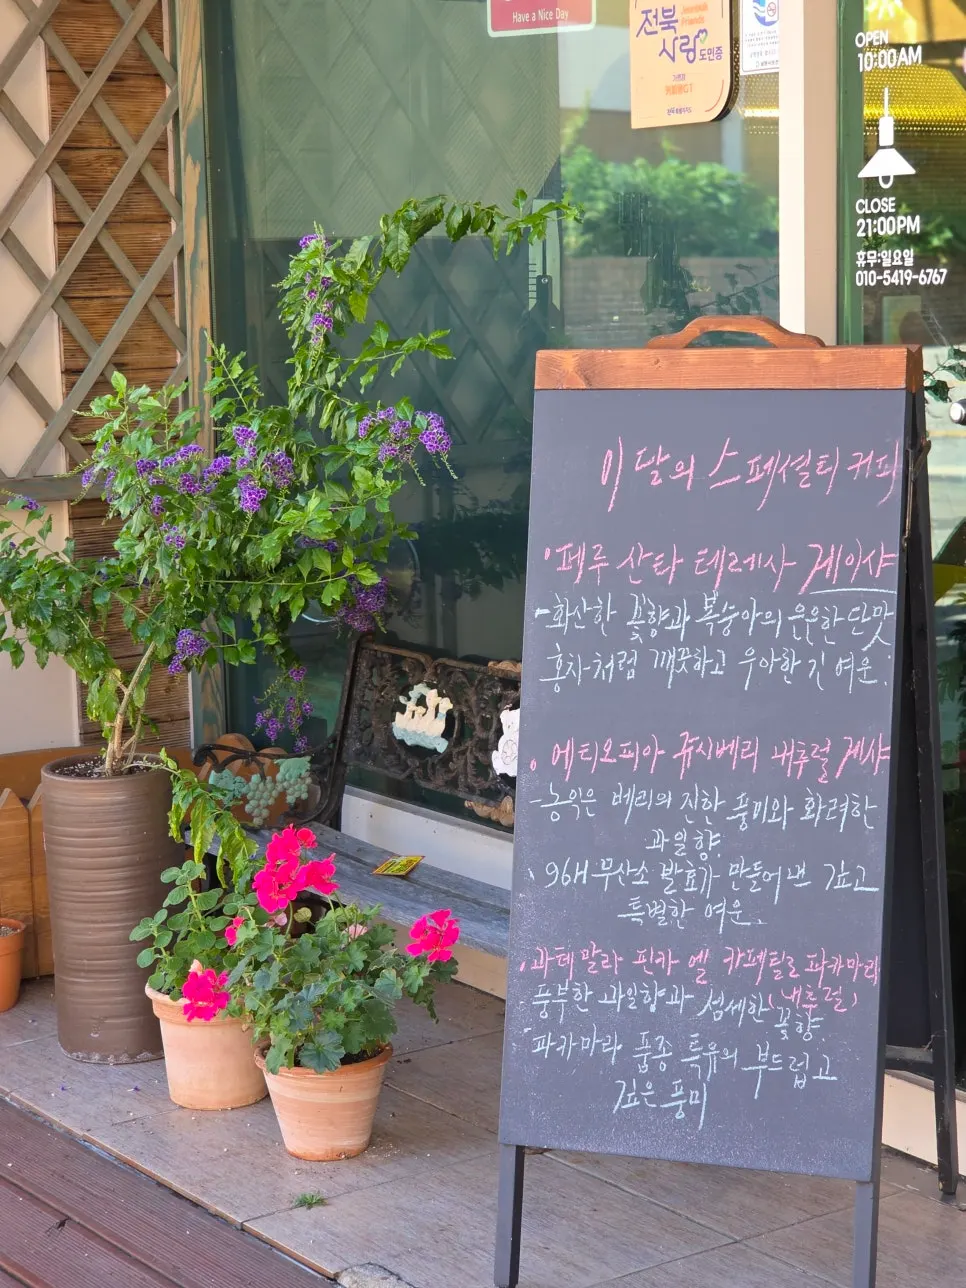 Have a Nice Day
전북
Jeonbuk
Friends
사랑
도민증
가맹점
OPEN
10:00AM
CLOSE
21:00PM
휴무:일요일
010-5419-6767
이달의 스페셜티 커피
페루 산타 테레사 게이샤
- 화산한 꽃향과 복숭아의 은은한 단맛
홍차처럼 깨끗하고 우아한 긴 여운.
에티오피아 쥬시베리 내추럴 게샤
- 농익은 베리의 진한 풍미와 화려한
과일향.
96H 무산소 발효가 만들어 낸 깊고
특별한 여운.
과테말라 핀카 엘 카페틸로 파카마라
(내추럴)
풍부한 과일향과 섬세한 꽃향.
파카마라 품종 특유의 부드럽고
깊은 풍미